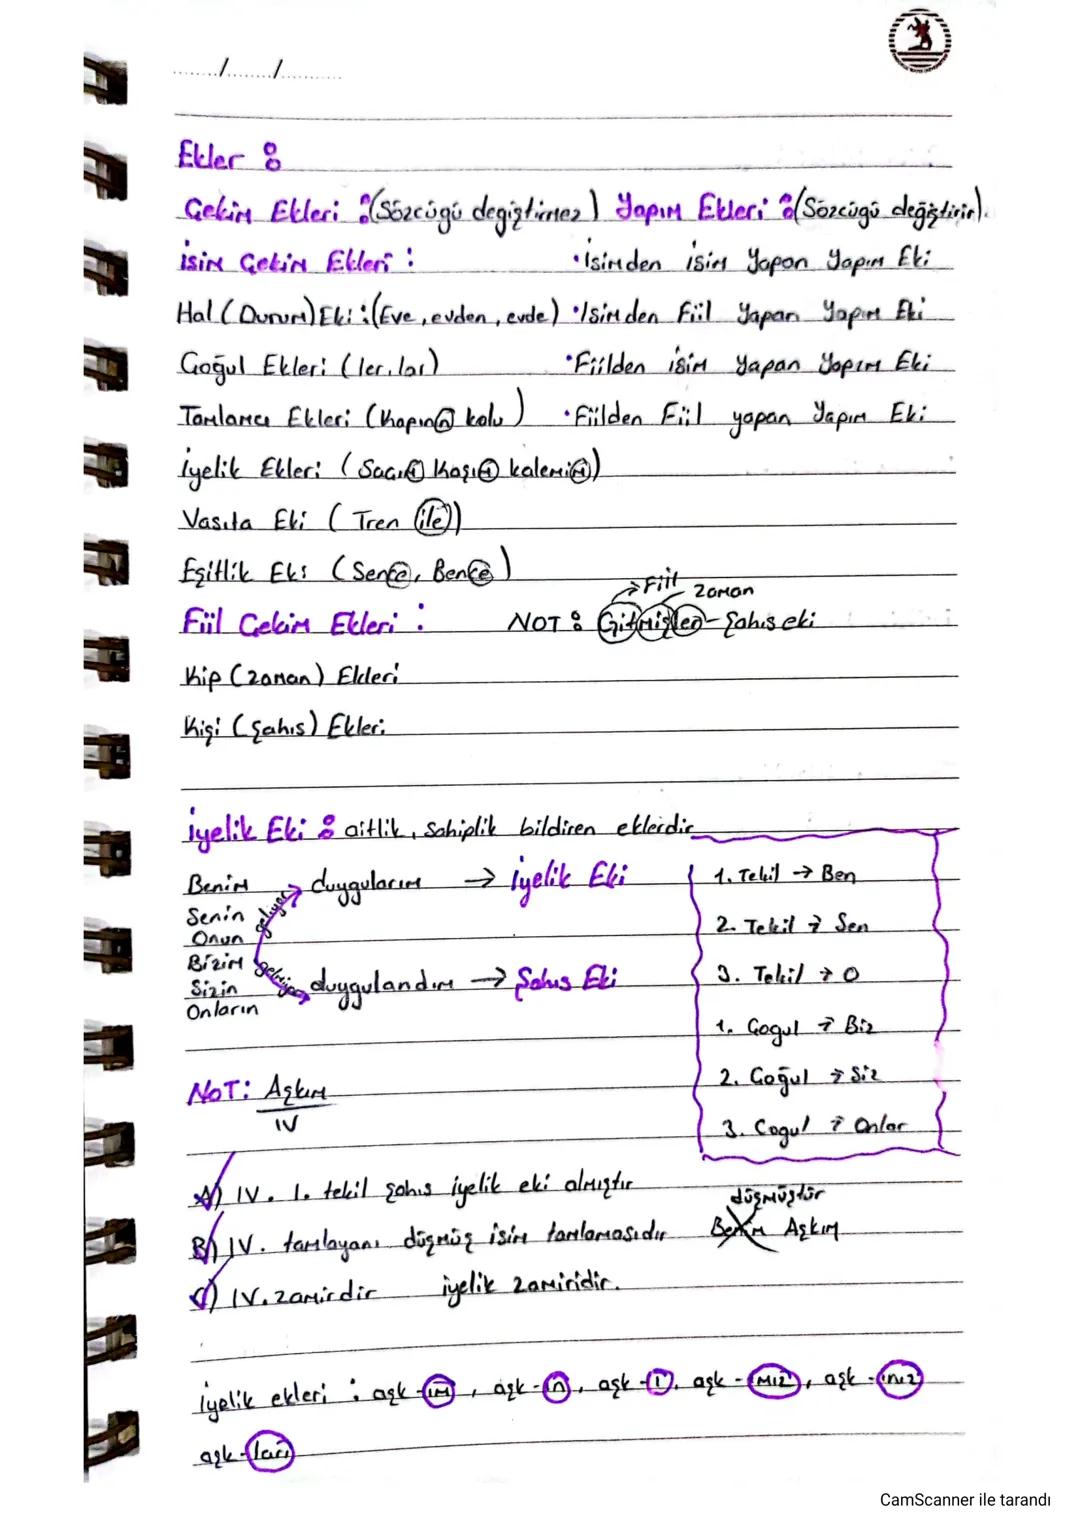 ....../....../......
Ekler :
Çekim Ekleri : (Sözcüğü değiştirmez) Yapım Ekleri : (Sözcüğü değiştirir).
İsim Çekim Ekleri :
• İsimden isim Yapan Yapım Eki
Hal (Durum) Eki : (Eve, evden, evde)
• İsimden Fiil Yapan Yapım Eki
Çoğul Ekleri (ler, lar)
• Fiilden isim Yapan Yapım Eki
Tamlama Ekleri (Kapının kolu)
• Fiilden Fiil yapan Yapım Eki
İyelik Ekleri (
Vasıta Eki ( Tren ile))
Eşitlik Eki (Sence, Bence)
Fiil
Zaman
Fiil Çekim Ekleri :
NOT : Gitmişler - Şahıs eki
Kip (Zaman) Ekleri
Kişi (Şahıs) Ekleri
İyelik Eki : aitlik, sahiplik bildiren eklerdir
Benim
Senin
Onun
Bizim
Sizin
Onların
geliyor
duygularım → İyelik Eki
gelmiyor
duygulandım → Şahıs Eki
1. Tekil → Ben
2. Tekil → Sen
3. Tekil → O
1. Çoğul → Biz
2. Çoğul → Siz
3. Çoğul → Onlar
NOT: Aşkım
IV
A) IV. 1. tekil şahıs iyelik eki almıştır
B) IV. tamlayanı düşmüş isim tamlamasıdır
düşmüştür
Benim Aşkım
C) IV. zamirdir iyelik zamiridir.
İyelik ekleri : aşk-ım, aşk-ın, aşk-ı, aşk-ımız, aşk-ınız
aşk-ları
CamScanner ile tarandı